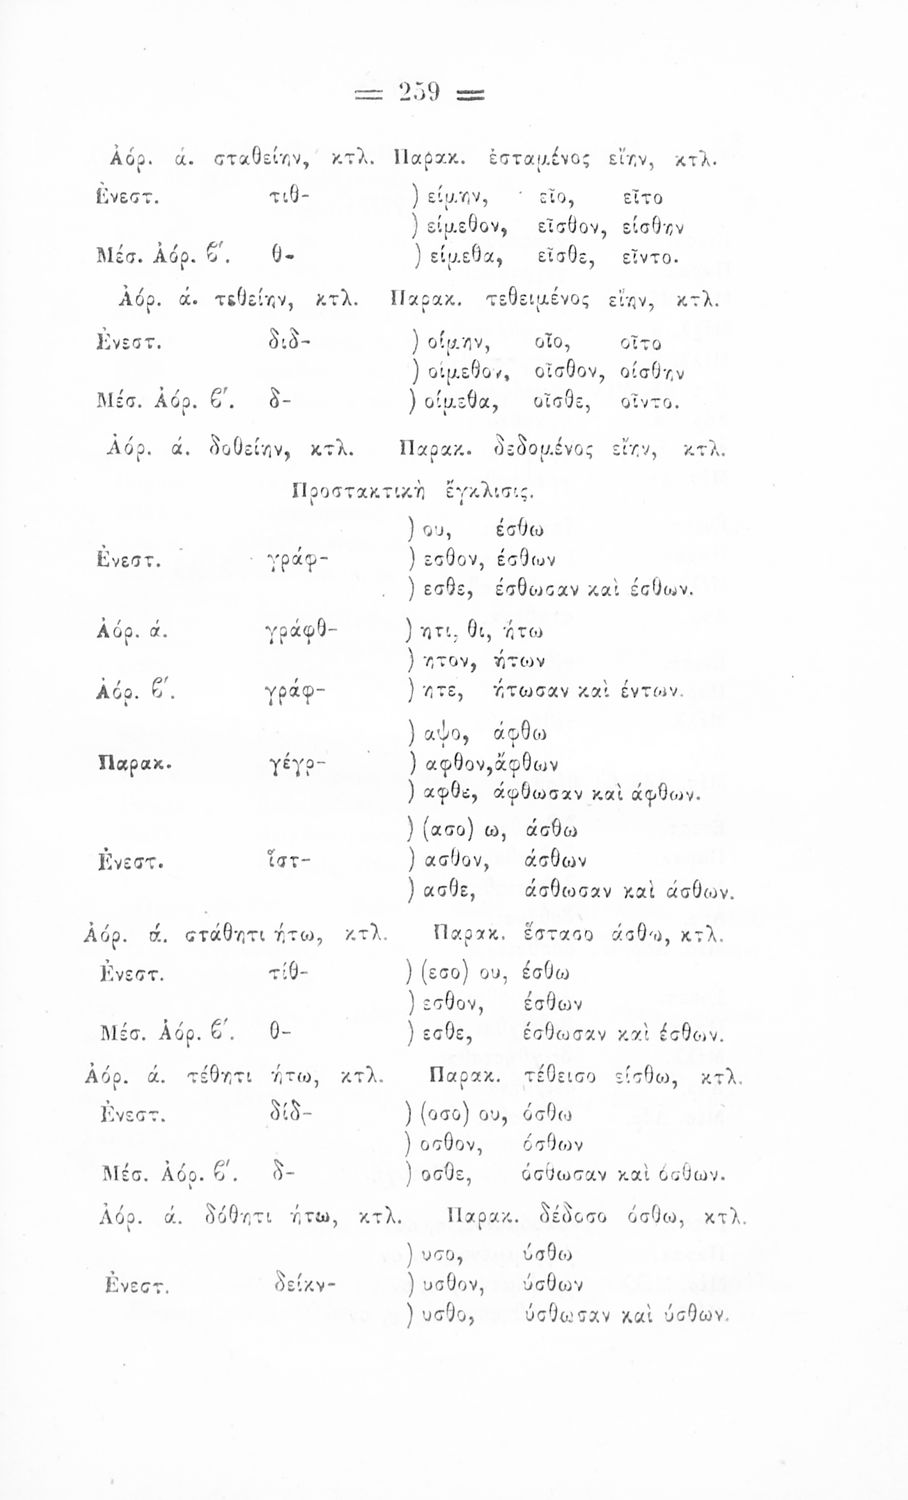 = 259 =
Ἀόρ. ά. σταθείην, κτλ. Παρακ. ἐσταμένος εἴην, κτλ.
Ἐνεστ. τιθ- ) είμην, εῖο, εῖτο
) είμεθον, εῖσθον, είσθην
Μέσ. Ἀόρ. β΄. θ- ) είμεθα, εῖσθε, εῖντο.
Ἀόρ. ά. τεθείην, κτλ. Παρακ. τεθειμένος εἴην, κτλ.
Ἐνεστ. διδ- ) οίμην, οῖο, οῖτο
) οίμεθον, οῖσθον, οίσθην
Μέσ. Ἀόρ. β΄. δ- ) οίμεθα, οῖσθε, οῖντο.
Ἀόρ. ά. δοθείην, κτλ. Παρακ. δεδομένος εἴην, κτλ.
Προστακτικὴ ἔγκλισις.
) ου, έσθω
Ἐνεστ. γράφ- ) εσθον, έσθων
) εσθε, έσθωσαν καὶ έσθων.
Ἀόρ. ά. γράφθ- ) ητι, θι, ήτω
) ητον, ήτων
Ἀόρ. β΄. γράφ- ) ητε, ήτωσαν καὶ έντων.
) αψο, άφθω
Παρακ. γέγρ- ) αφθον, ἄφθων
) αφθε, άφθωσαν καὶ άφθων.
) (ασο) ω, άσθω
Ἐνεστ. ἵστ- ) ασθον, άσθων
) ασθε, άσθωσαν καὶ άσθων.
Ἀόρ. ά. στάθητι ήτω, κτλ. Παρακ. ἕστασο άσθω, κτλ.
Ἐνεστ. τίθ- ) (εσο) ου, έσθω
) εσθον, έσθων
Μέσ. Ἀόρ. β΄. θ- ) εσθε, έσθωσαν καὶ έσθων.
Ἀόρ. ά. τέθητι ήτω, κτλ. Παρακ. τέθεισο είσθω, κτλ.
Ἐνεστ. δίδ- ) (οσο) ου, όσθω
) οσθον, όσθων
Μέσ. Ἀόρ. β΄. δ- ) οσθε, όσθωσαν καὶ όσθων.
Ἀόρ. ά. δόθητι ήτω, κτλ. Παρακ. δέδοσο όσθω, κτλ.
) υσο, ύσθω
Ἐνεστ. δείκν- ) υσθον, ύσθων
) υσθο, ύσθωσαν καὶ ύσθων.